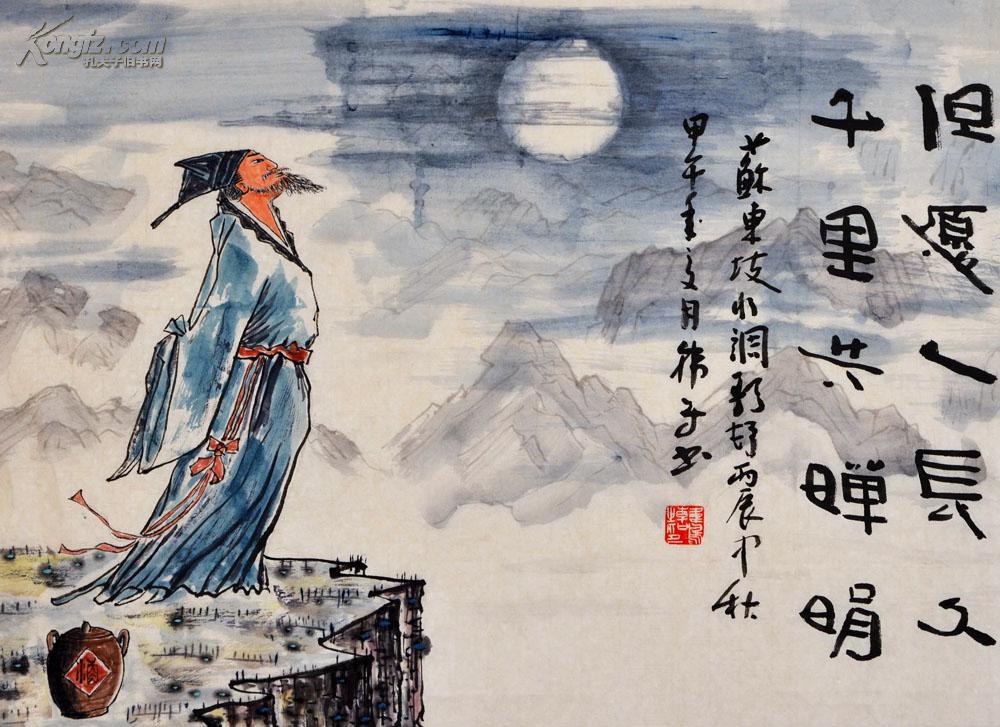 Kongfz.com
孔夫子旧书网
但愿人長久
千里共嬋娟
蘇東坡水調歌頭丙辰中秋
甲午年月书
酒